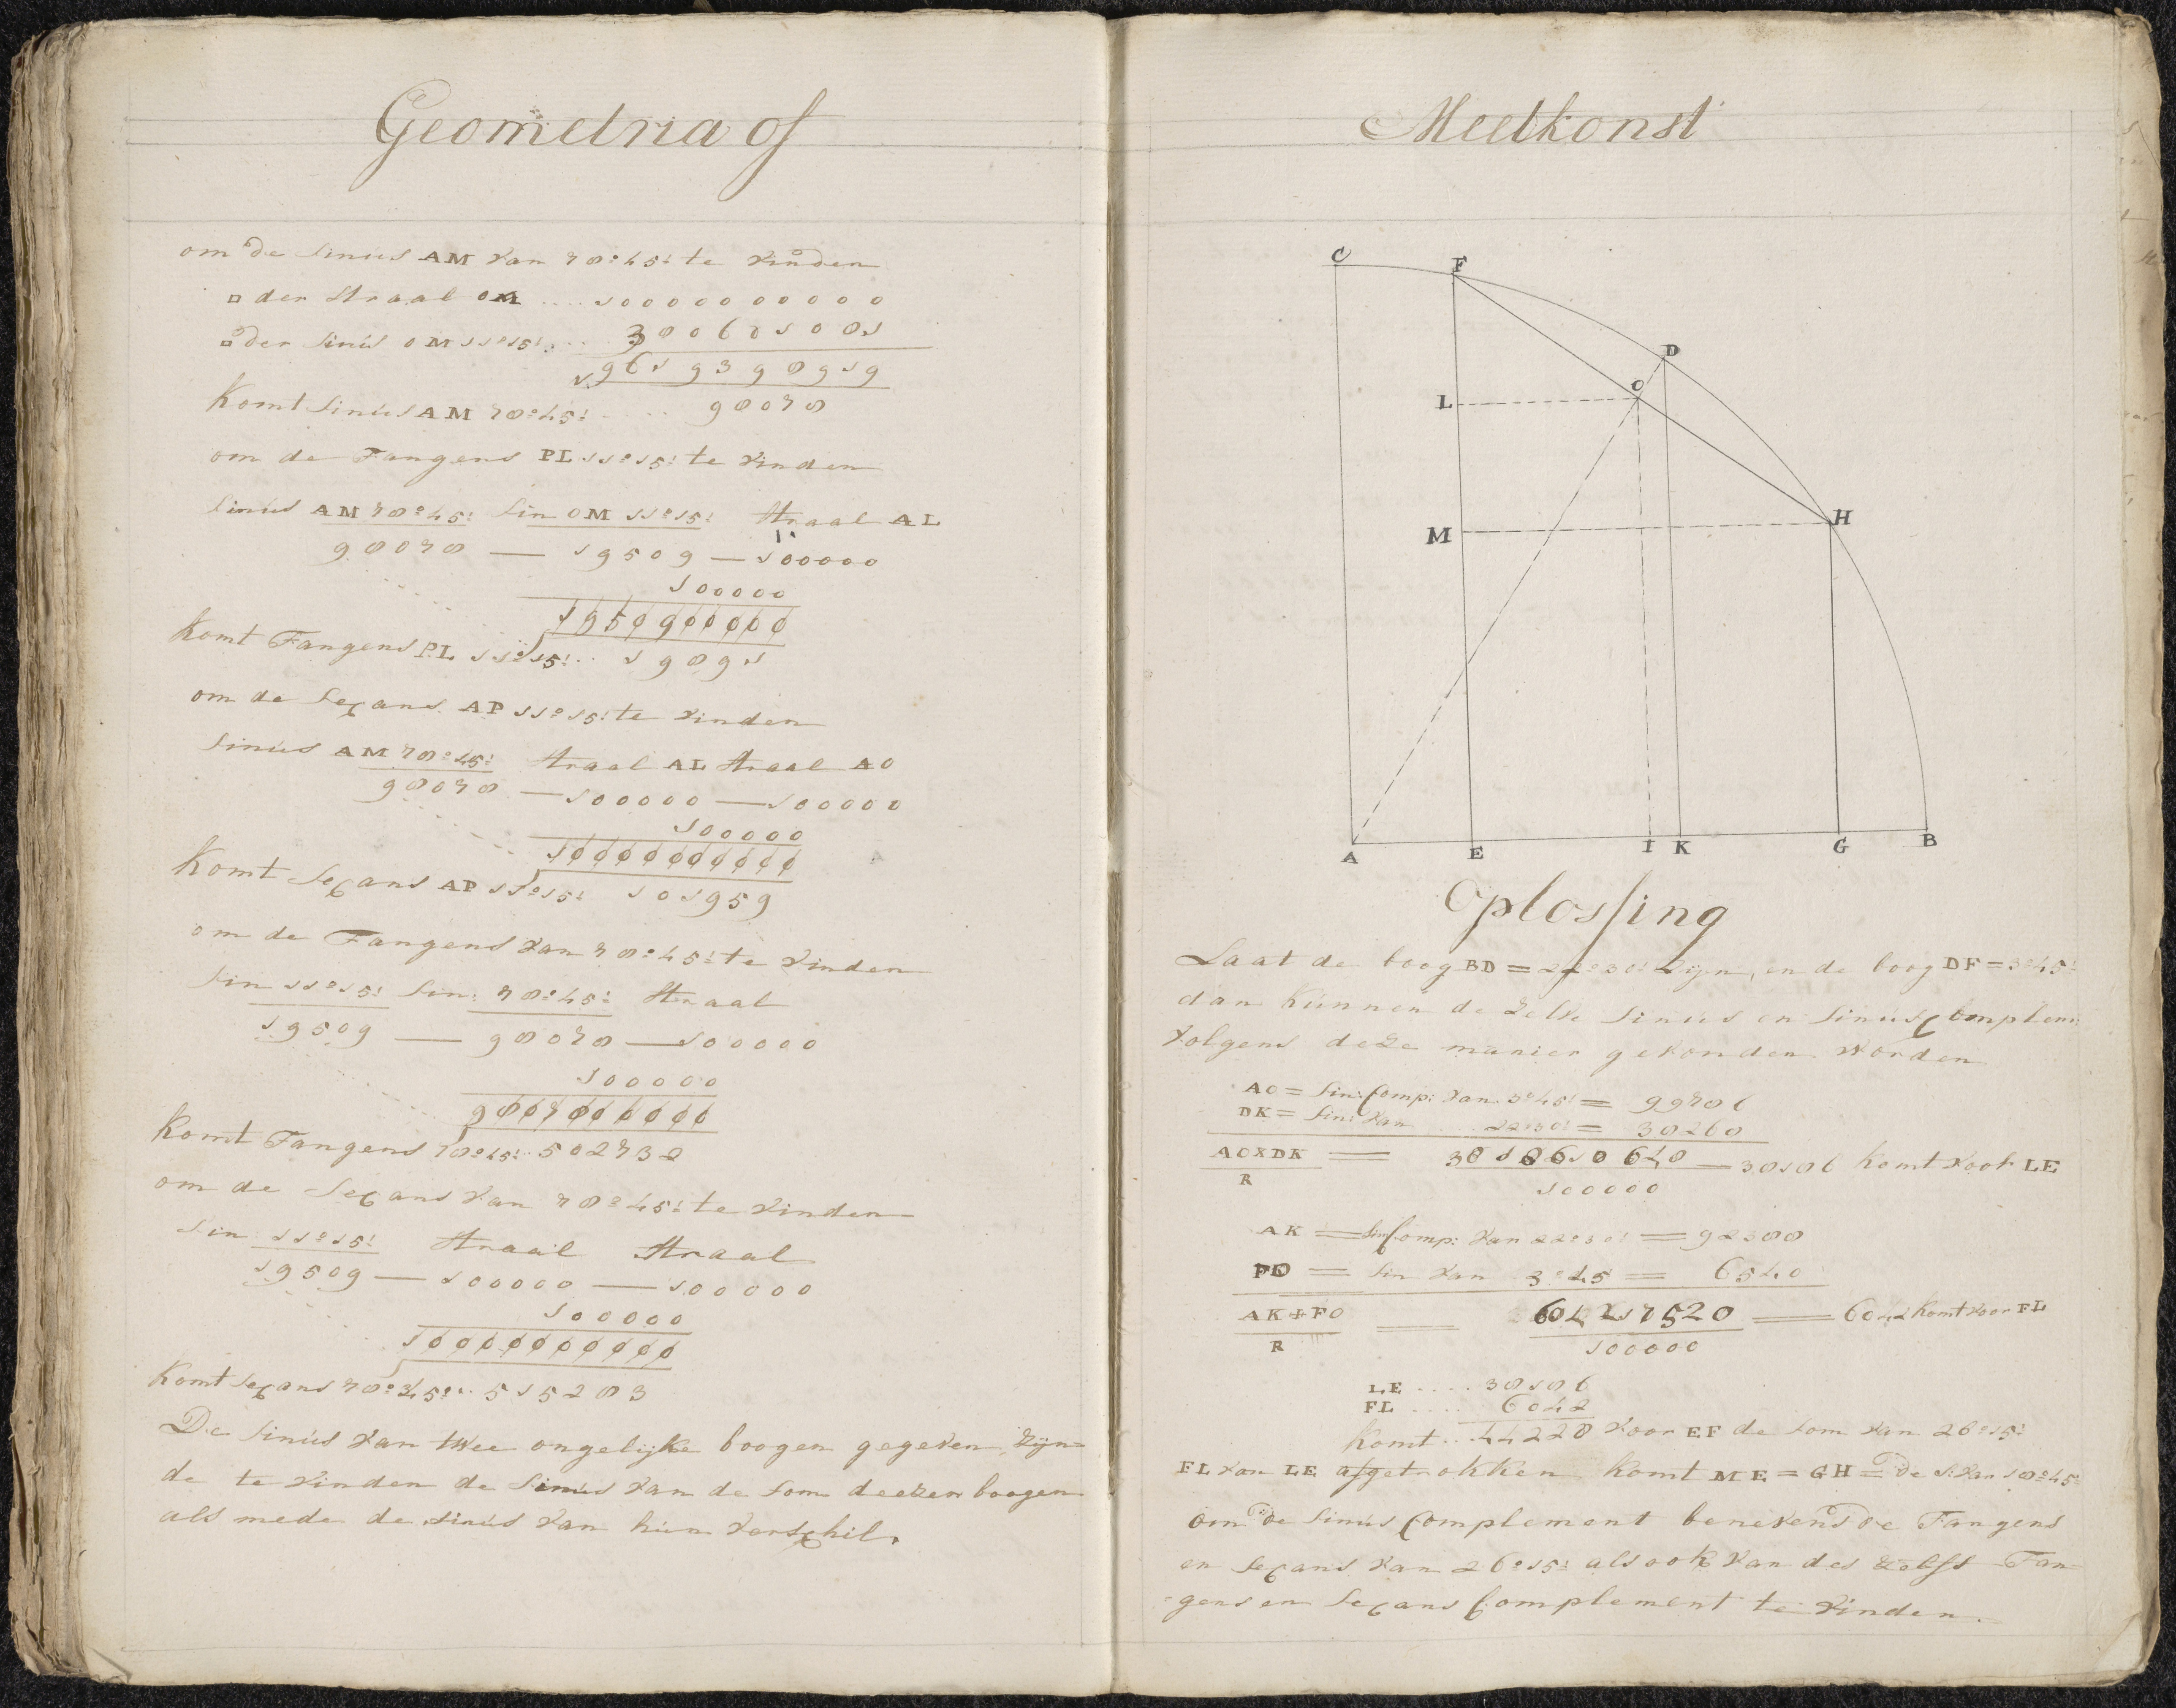 Geometria of
om de Sinus AM van 78°:45' te vinden
□ der Straal OM .... 10000000000
□ der Sinus OM 11°:15' .... 380601081
9619398919
Komt Sinus AM 78°:45' .... 98078
om de Tangens PL 11°:15' te vinden
Sinus AM 78°:45' Sin OM 11°:15' Straal AL
98078 — 19509 — 100000
100000
1950900000
Komt Tangens PL 11°:15' .. 19891
om de Secans AP 11°:15' te vinden
Sinus AM 78°:45' Straal AL Straal AO
98078 — 100000 — 100000
100000
10000000000
Komt Secans AP 11°:15' 101959
om de Tangens van 78°:45' te vinden
Sin 11°:15' Sin: 78°:45' Straal
19509 — 98078 — 100000
100000
9807800000
Komt Tangens 78°:45' .. 502732
om de Secans van 78°:45' te vinden
Sin 11°:15' Straal Straal
19509 — 100000 — 100000
100000
10000000000
Komt Secans 78°:45' .. 515283
De Sinus van twee ongelijke boogen gegeven, zijn=
de te vinden de Sinus van de Som deezen boogen
als mede de Sinus van hun verschil.
Meetkonst
C F D O L M H A E I K G B
Oplossing
Laat de boog BD = 22°:30' zijn, en de boog DF = 3°:45'
dan kunnen de zelve Sinus en Sinus Complem:
volgens deze manier gevonden worden
AO = Sin: Comp: van 3°:45' = 99786
DK = Sin: van 22°:30' = 38268
AO×DK = 3818610640 — 38186 komt voor LE
R 100000
AK = Sin Comp: van 22°:30' = 92388
FO = Sin van 3°:45' = 6540
AK+FO = 604217520 = 6042 komt voor FL
R 100000
LE .... 38186
FL .... 6042
Komt .. 44228 voor EF de Som van 26°:15'
FL van LE afgetrokken komt ME = GH = De S: van 18°:45'
Om de Sinus Complement benevens de Tangens
en Secans van 26°:15' als ook van des zelfs Tan
gens en Secans Complement te vinden.